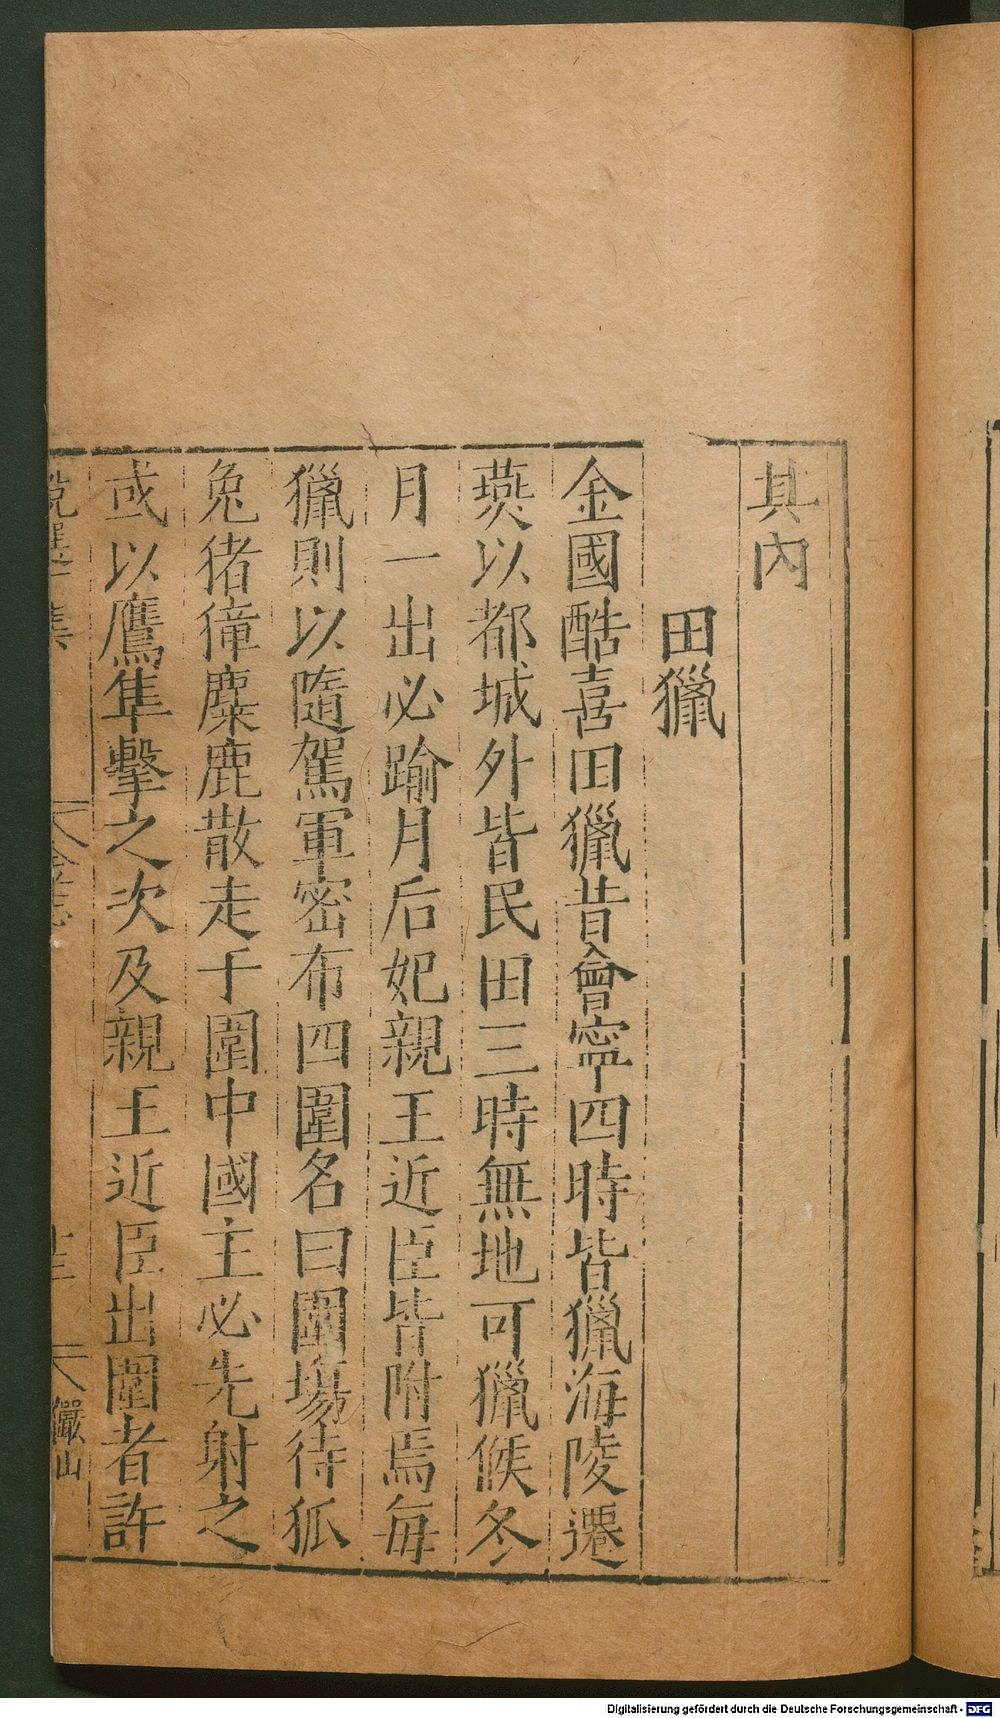 其內
田獵
金國酷喜田獵昔會寧四時皆獵海陵遷
燕以都城外皆民田三時無地可獵候冬
月一出必踰月后妃親王近臣皆附焉每
獵則以隨駕軍密布四圍名曰圍場待狐
兔猪獐麋鹿散走于圍中國主必先射之
或以鷹隼擊之次及親王近臣出圍者許
儼山
Digitalisierung gefördert durch die Deutsche Forschungsgemeinschaft - DFG